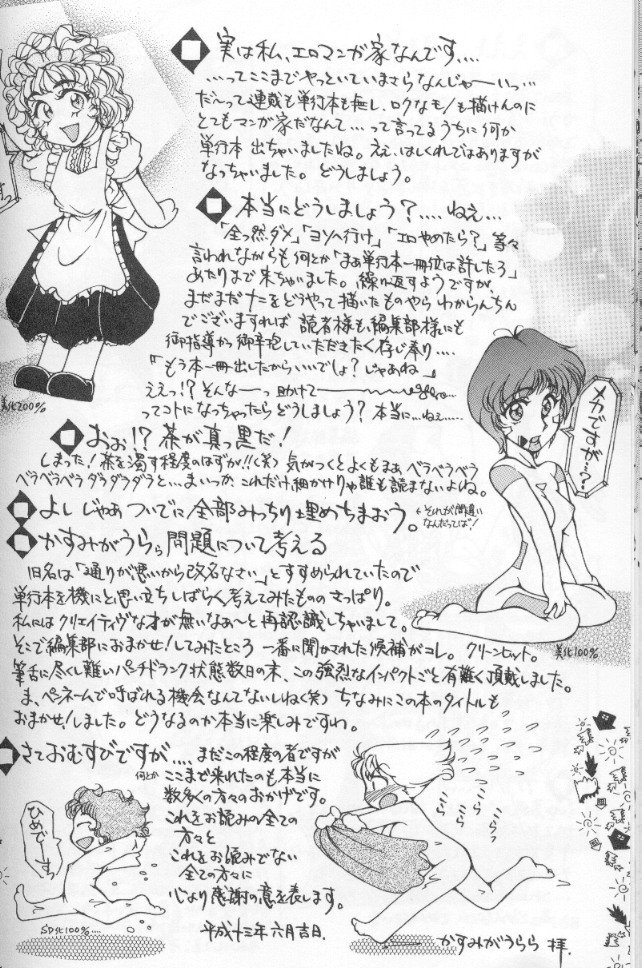 実は私、エロマンガ家なんです....
...ってここまでやっといていまさらなんじゃーいっ...
だ〜って連載も単行本も無し、ロクなモノも描けんのに
とてもマンガ家だなんて...って言ってるうちに何か
単行本出ちゃいましたね。ええ、はしくれではありますが
なっちゃいました。どうしましょう。
本当にどうしましょう?....ねえ...
「全っ然ダメ」「ヨソへ行け」「エロやめたら?」等々
言われながらも何とか「まあ単行本一冊位は許したろ」
あたりまで来ちゃいました。繰り返すようですが、
まだまだナニをどうやって描いたものやらわからんちん
でございますれば読者様も編集部様にも
御指導かつ御辛抱していただきたく存じ奉り....
「もう本一冊出したからいいでしょ?じゃあね」
ええっ!?そんなーっ助けて
ってコトになっちゃったらどうしましょう?本当に...ねぇ....
美化200%
メカですが...?
おぉ!?茶が真っ黒だ!
しまった!茶を濁す程度のはずが!!(笑)気がつくとよくもまあベラベラベラ
ベラベラベラダラダラダラと...まいっか、これだけ細かけりゃ誰も読まないよね。
よしじゃあついでに全部みっちり埋めちまおう。
←それが間違い
なんだってば!
かすみがうらら問題について考える
旧名は「通りが悪いから改名なさい」とすすめられていたので
単行本を機にと思い立ちしばらく考えてみたもののさっぱり。
私にはクリエイティヴな才が無いなあ〜と再認識しちゃいまして。
そこで編集部におまかせ!してみたところ一番に聞かされた候補がコレ。クリーンヒット。
筆舌に尽くし難いパンチドランク状態数日の末、この強烈なインパクトごと有難く頂戴しました。
ま、ペンネームで呼ばれる機会なんてないしねく笑)ちなみにこの本のタイトルも
おまかせ!しました。どうなるのか本当に楽しみですわ。
美化100%
さておむすびですが....まだこの程度の者ですが
何とかここまで来れたのも本当に
数多くの方々のおかげです。
これをお読みの全ての
方々と
これをお読みでない
全ての方々に
心より感謝の意を表します。
平成十三年六月吉日
ひめです。
SD化100%...
うらら
うらら
かすみがうらら 拝.